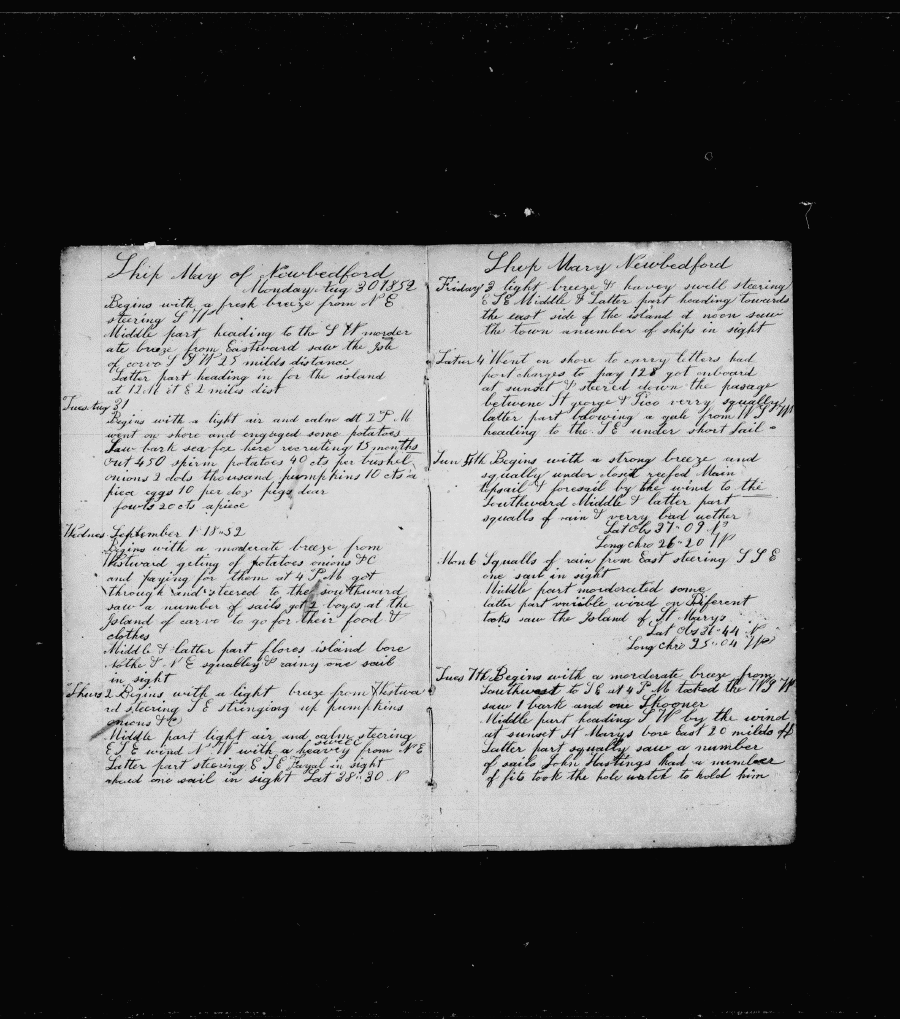 Ship May of Newbedford
Monday Aug 30 1852
Begins with a fresh breeze from N E
steering S W
Middle part heading to the S W morder
ate breze from Eastward saw the Isle
of corvo S S W 25 milds distance
Latter part heading in for the island
at 12 M it E 2 miles dist
Tues Aug 31
Begins with a light air and calme At 2 P. M
went on shore and engaged some potatoes
Saw bark sea fox here recruting 15 months
out 450 spirm potatoes 40 cts per bushel
onions 2 dols thousand pumpkins 10 cts a
piea eggs 10 per doz pigs dear
fowls 20 cts apiece
Wednes September 1 1852
Begins with a moderate breeze from
Westward geting of potatoes onions &C
and paying for them at 4 P M got
through and steered to the southward
saw a number of sails got 2 boyes at the
Island of carvo to go for their food &
clothes
Middle & latter part flores island bore
Nothe & N E squalley & rainy one sail
in sight
Thurs 2 Begins with a light breze from Westwa
rd steering S E stringing up pumpkins
onions &C
Middle part light air and calme steering
swell
E S E wind N W with a heavey from N E
Latter part steering E S E Fayal in sight
ahead one sail in sight Lat 38-30 N
Shep Mary Newbedford
Friday 3 light breeze & havey swell steering
E S E Middle & Latter part heading towards
the east side of the island at noon saw
the town anumber of ships in sight
Satur 4 Went on shore to carry letters had
port charges to pay 128 got onboard
at sunset & steered down the pasage
betwene St george & Pico verry squalley
latter part blowing a gale from W S W
heading to the S E under short sail
Sun 5th Begins with a strong breeze and
squally under closed reefed Main
topsail & foresail by the wind to the
Southward Middle & latter part
squalls of rain & verry bad wether
Lat Obs 37-09 N
Long Chro 26-20 W
Mon 6 Squalls of rain from East steering S S E
one sail in sight
Middle part mordorated some
latter part varible wind on Diferent
tacks saw the Island of St Marys
Lat Obs 36-44 N
Long Chro 25-04 W
Tues 7th Begins with a morderate breze from
Southwest to S E at 4 P. M tacked the W S W
saw 1 bark and one Skooner
Middle part heading S W by the wind
at sunset St Marys bore East 20 milds of
Latter part squally saw a number
of sails John Hastings had a number
of fits took the hole watch to hold him